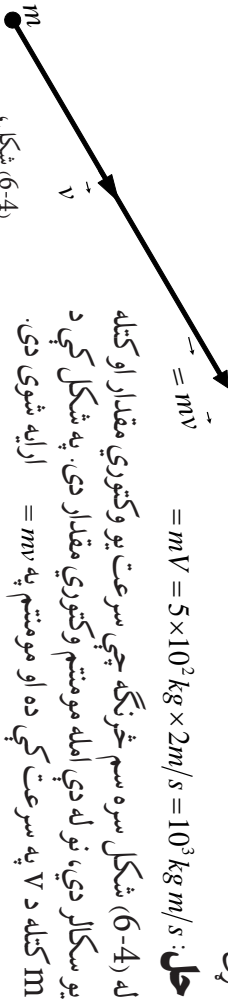 حل: = mV = 5×10² kg × 2m/s = 10³ kg m/s
له (6-4) شکل سره سم څرنګه چې سرعت يو وکتوري مقدار او کتله
يو سکالر دي، نو له دې امله مومنتم وکتوري مقدار دی. په شکل کې د
m کتله د V په سرعت کې ده او مومنتم په = mv ارايه شوی دی.
→ = mv⃗
v⃗
m
(6-4) شکل،